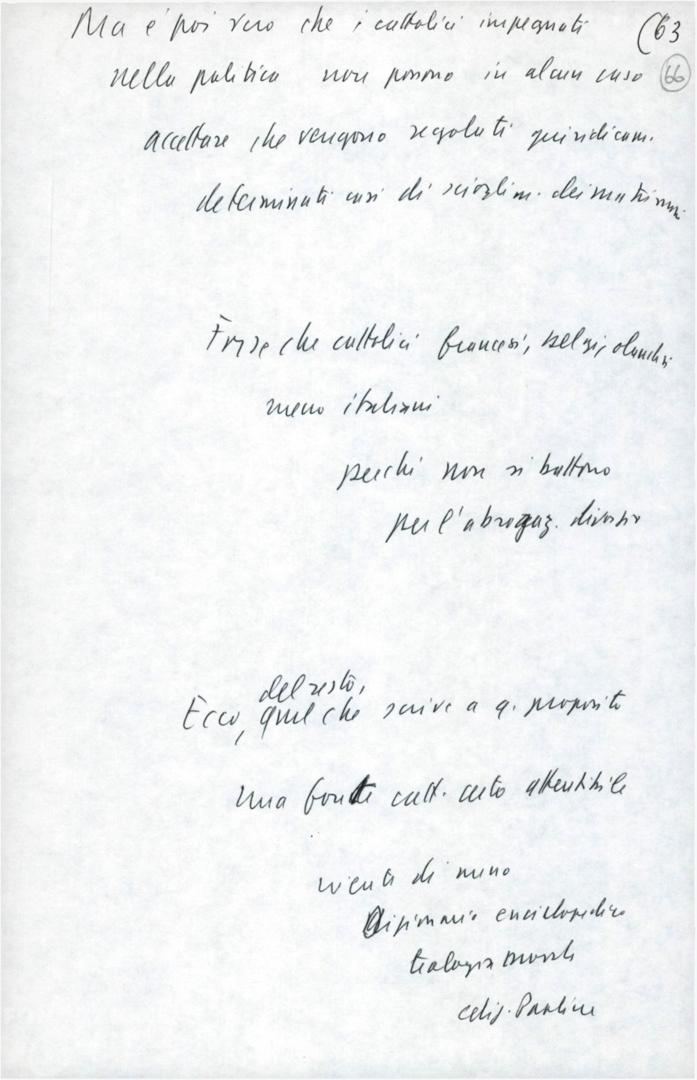 Ma è poi vero che i cattolici impegnati (63
nella politica non possono in alcun caso 66
accettare che vengono regolati giuridicam.
determinati casi di scioglim. dei matrimoni
Forse che cattolici francesi, belgi, olandesi
meno italiani
perché non si battono
per l'abrogaz. divorzio
del resto,
Ecco, quel che scrive a q. proposito
una fonte catt. certo attendibile
niente di meno
Dizionario enciclopedico
teologia morale
ediz. Paoline